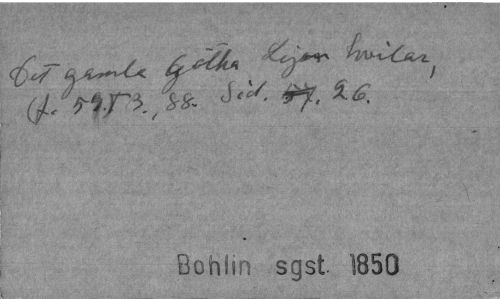 Det gamla Götha Lejon hvilar,
(f. 59. T 3., 88. Sid. 57. 26.
Bohlin sgst. 1850